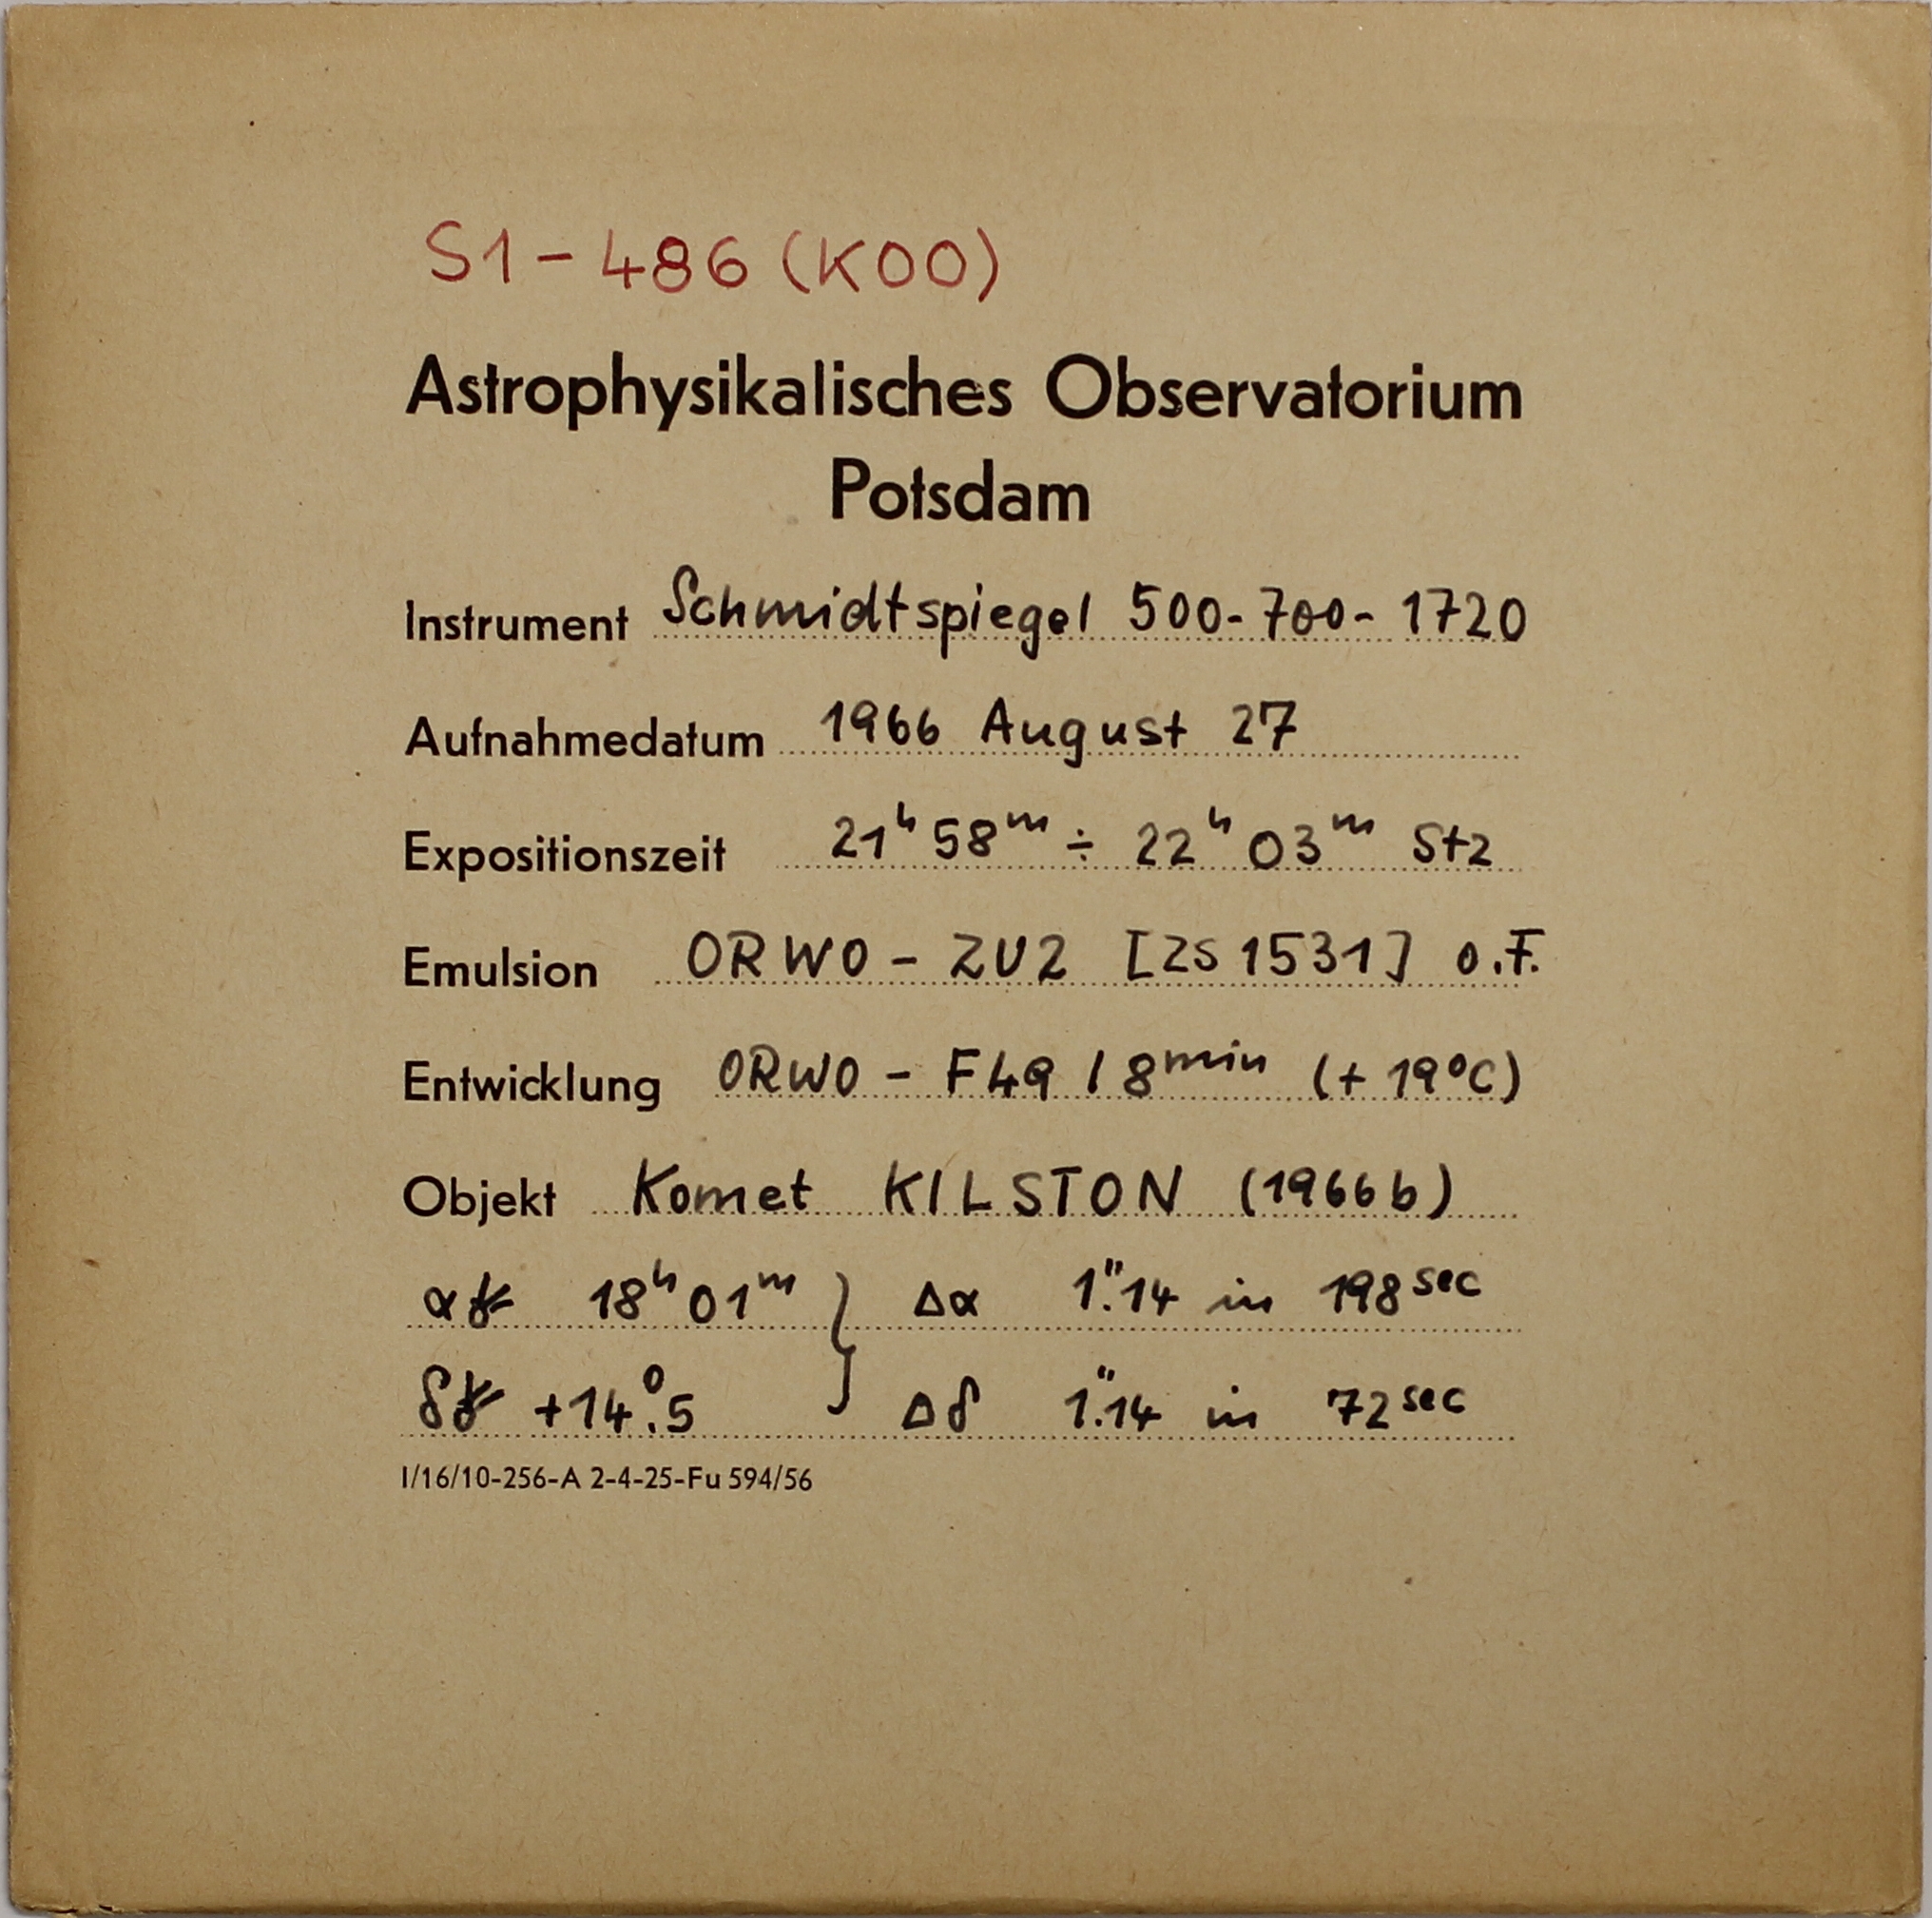 S1 - 486 (KOO)
Astrophysikalisches Observatorium
Potsdam
Instrument Schmidtspiegel 500-700-1720
Aufnahmedatum 1966 August 27
Expositionszeit 21ʰ 58ᵐ ÷ 22ʰ 03ᵐ Stz
Emulsion ORWO - ZU2 [ZS 1531] o.F.
Entwicklung ORWO - F49 / 8ᵐⁱⁿ (+ 19°C)
Objekt Komet KILSTON (1966 b)
α☄ 18ʰ 01ᵐ } Δα 1".14 in 198 sec
δ☄ +14°.5 Δδ 1".14 in 72 sec
I/16/10-256-A 2-4-25-Fu 594/56